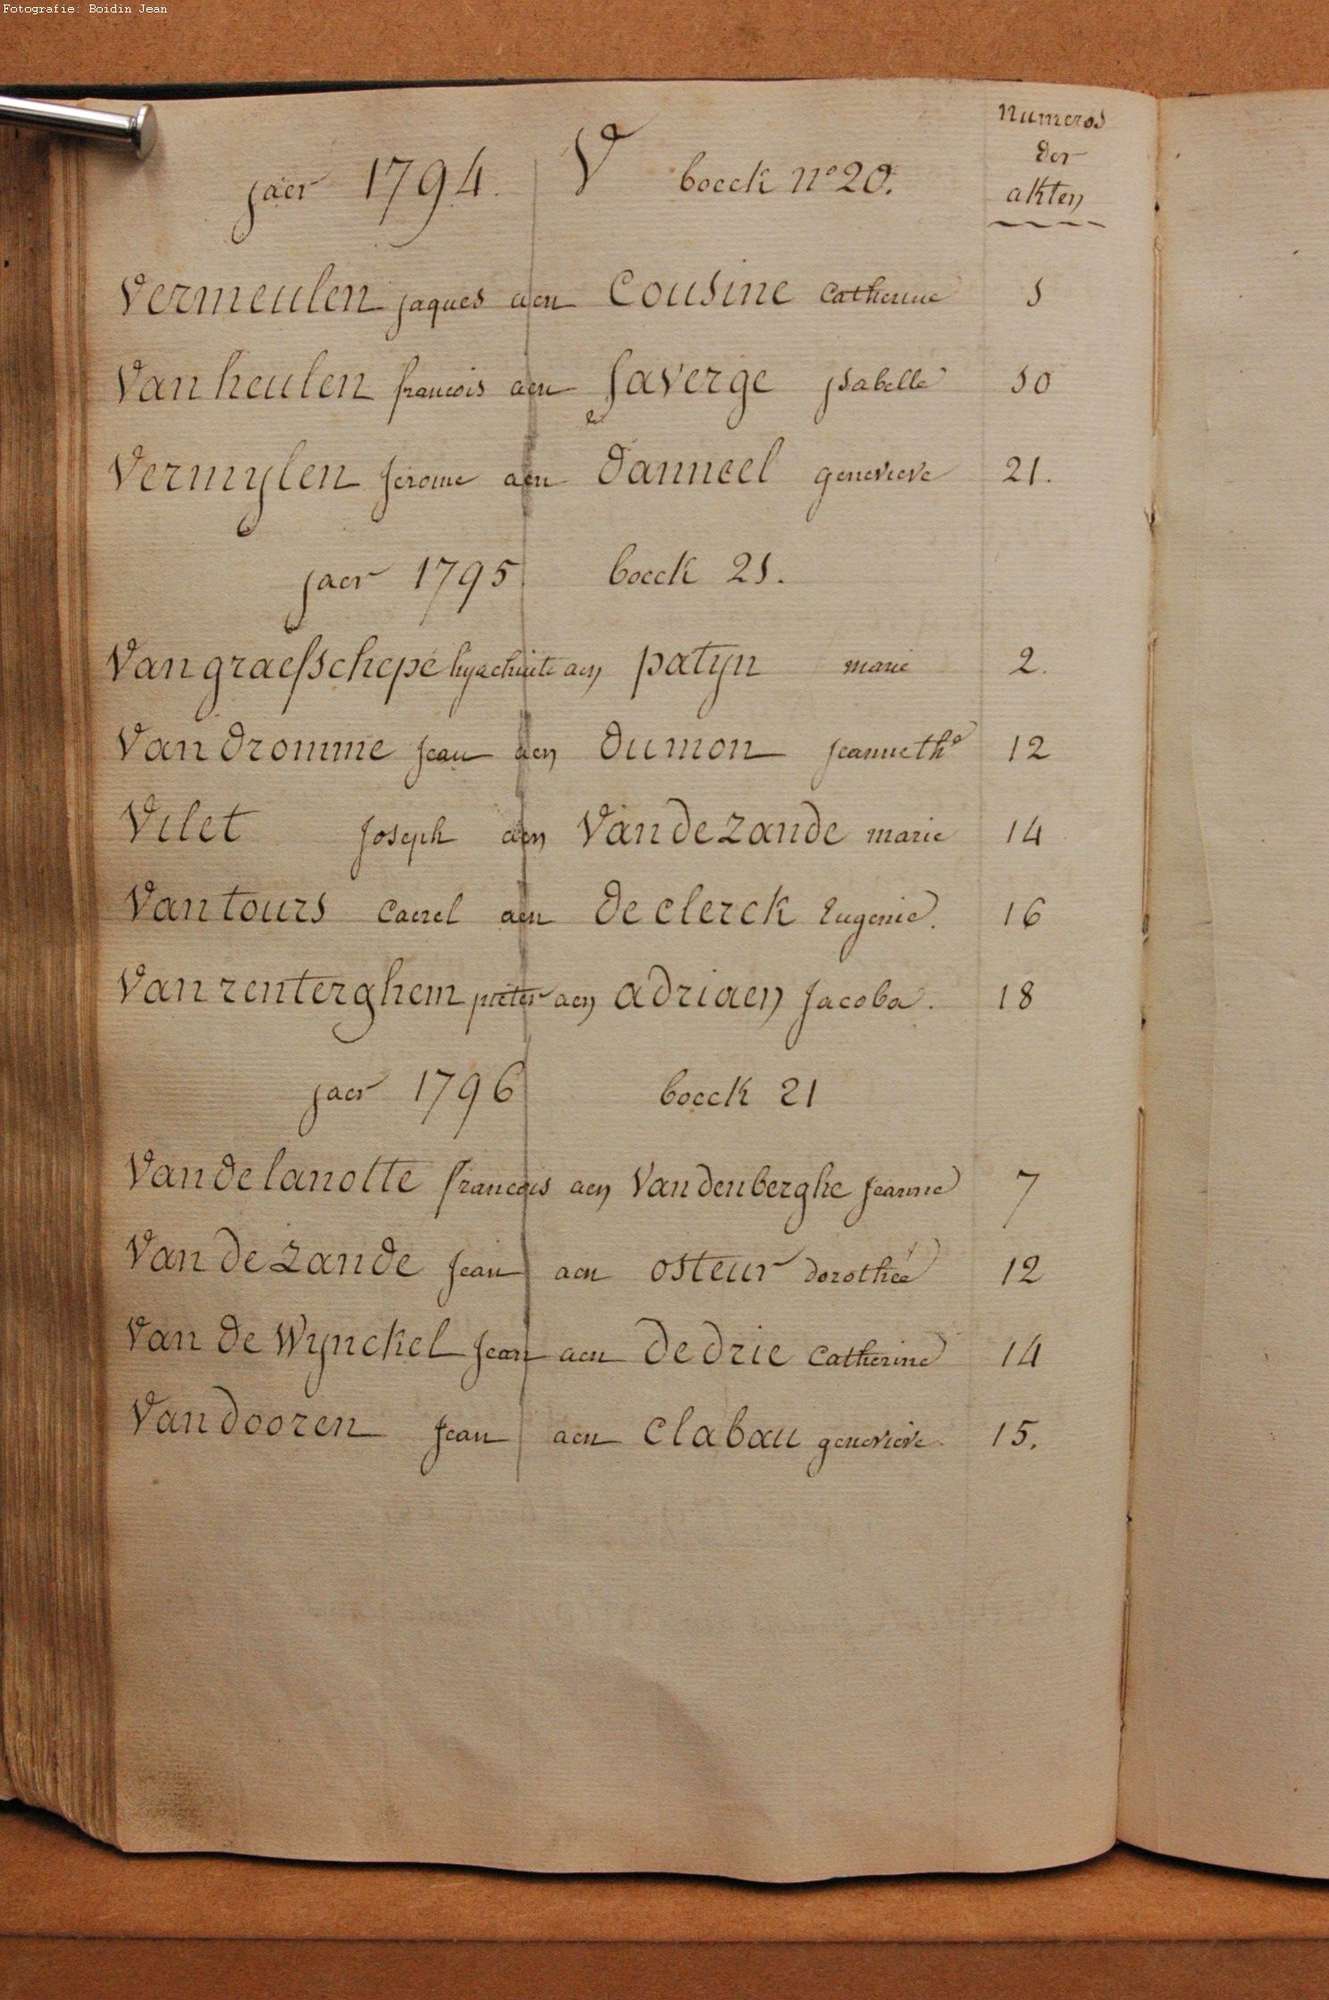 Fotografie: Boidin Jean
Numeros
der
akten
jaer 1794. V boeck n° 20.
Vermeulen jaques aen Cousine Catherine 5
Van heulen francois aen Saverge ysabelle 10
Vermylen Jerome aen Danneel genevieve 21.
jaer 1795 boeck 21.
Van graefschepe hyachinte aen patyn marie 2.
Van Dromme Jean aen Dumon Jeanneth 12
Vilet Joseph aen Van De Zande marie 14
Van tours Caerel aen De clerck Eugenie. 16
Van renterghem pieter aen adriaen Jacoba. 18
jaer 1796 boeck 21
Van De lanotte francois aen Van den berghe Jeanne 7
Van De Zande Jean aen osteur dorothée 12
Van De Wynckel Jean aen De Drie Catherine 14
Van Dooren Jean aen Clabau genevieve. 15.